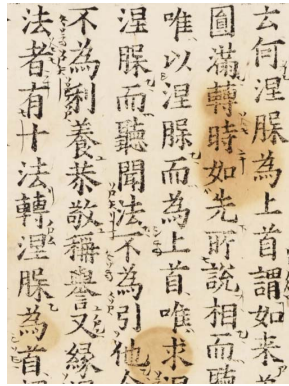 云何涅槃為上首謂如来為
圓滿轉時如先所説相而
唯以涅槃而為上首唯求涅
涅槃而聽聞法不為引他
不為利養恭敬稱譽又緣
法者有十法轉涅槃為首